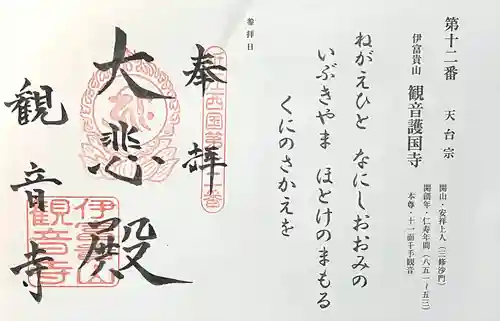 第十二番 天台宗
伊富貴山 観音護国寺
開山・安祥上人(三修沙門)
開創年・仁寿年間(八五一〜五三)
本尊・十一面千手観音
ねがえひと なにしおおみの
いぶきやま ほとけのまもる
くにのさかえを
参拝日
奉拝
大悲殿
観音寺
近江西国第十二番
伊富貴山
観音寺